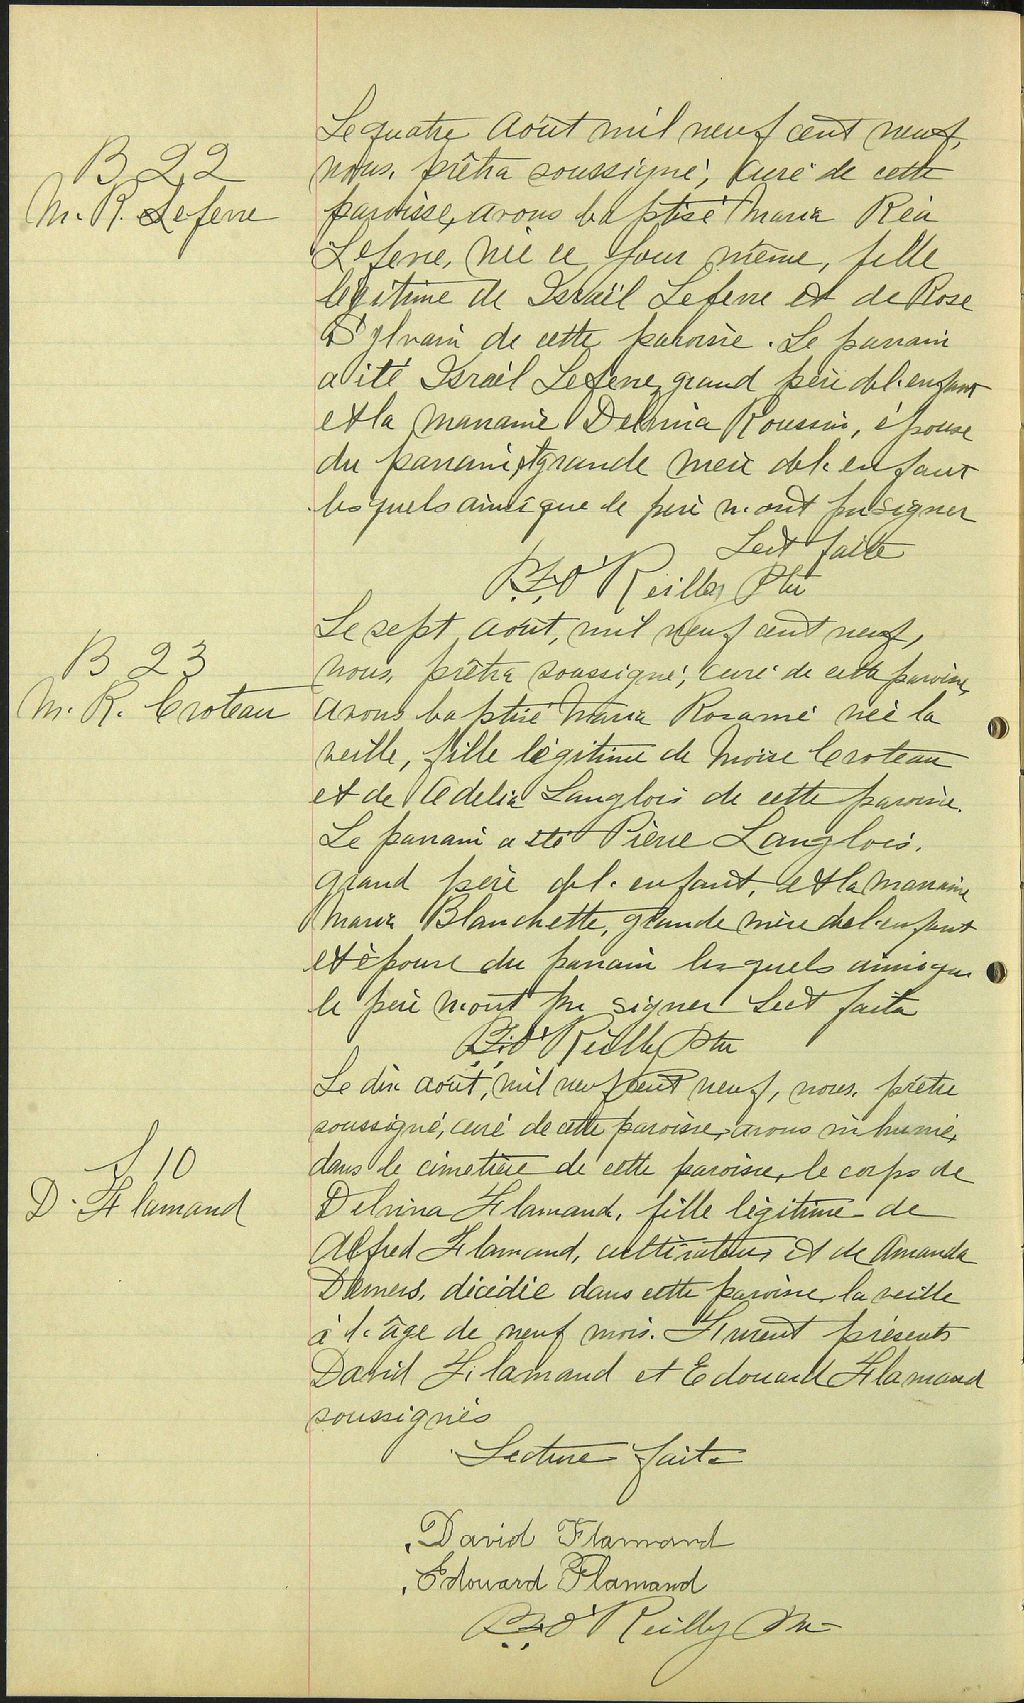 B 22
M. R. Lefevre
Le quatre Août mil neuf cent neuf,
nous, prêtre soussigné, curé de cette
paroisse, avons baptisé Maria Réa
Lefevre, née ce jour même, fille
légitime de Israël Lefevre et de Rose
Sylvain de cette paroisse. Le parrain
a été Israël Lefevre, grand père de l'enfant
et la marraine Delvina Roussin, épouse
du parrain, et grande mère de l'enfant
lesquels ainsi que le père n'ont pu signer
Lect faite
O'Reilly Ptre
B 23
M. R. Croteau
Le sept Août, mil neuf cent neuf,
nous, prêtre soussigné, curé de cette paroisse,
avons baptisé Maria Rosanné née la
veille, fille légitime de Moise Croteau
et de Adelia Langlois de cette paroisse.
Le parrain a été Pierre Langlois,
grand père de l'enfant, et la marraine
Maria Blanchette, grande mère de l'enfant
et épouse du parrain lesquels ainsi que
le père n'ont pu signer Lect faite
O'Reilly Ptre
S 10
D. Flamand
Le dix août, mil neuf cent neuf, nous, prêtre
soussigné, curé de cette paroisse, avons inhumé,
dans le cimetière de cette paroisse, le corps de
Delvina Flamand, fille légitime de
Alfred Flamand, cultivateur et de Amanda
Demers, décédée dans cette paroisse, la veille
à l'âge de neuf mois. Furent présents
David Flamand et Edouard Flamand
soussignés
Lecture faite
David Flamand
Edouard Flamand
O'Reilly Ptre